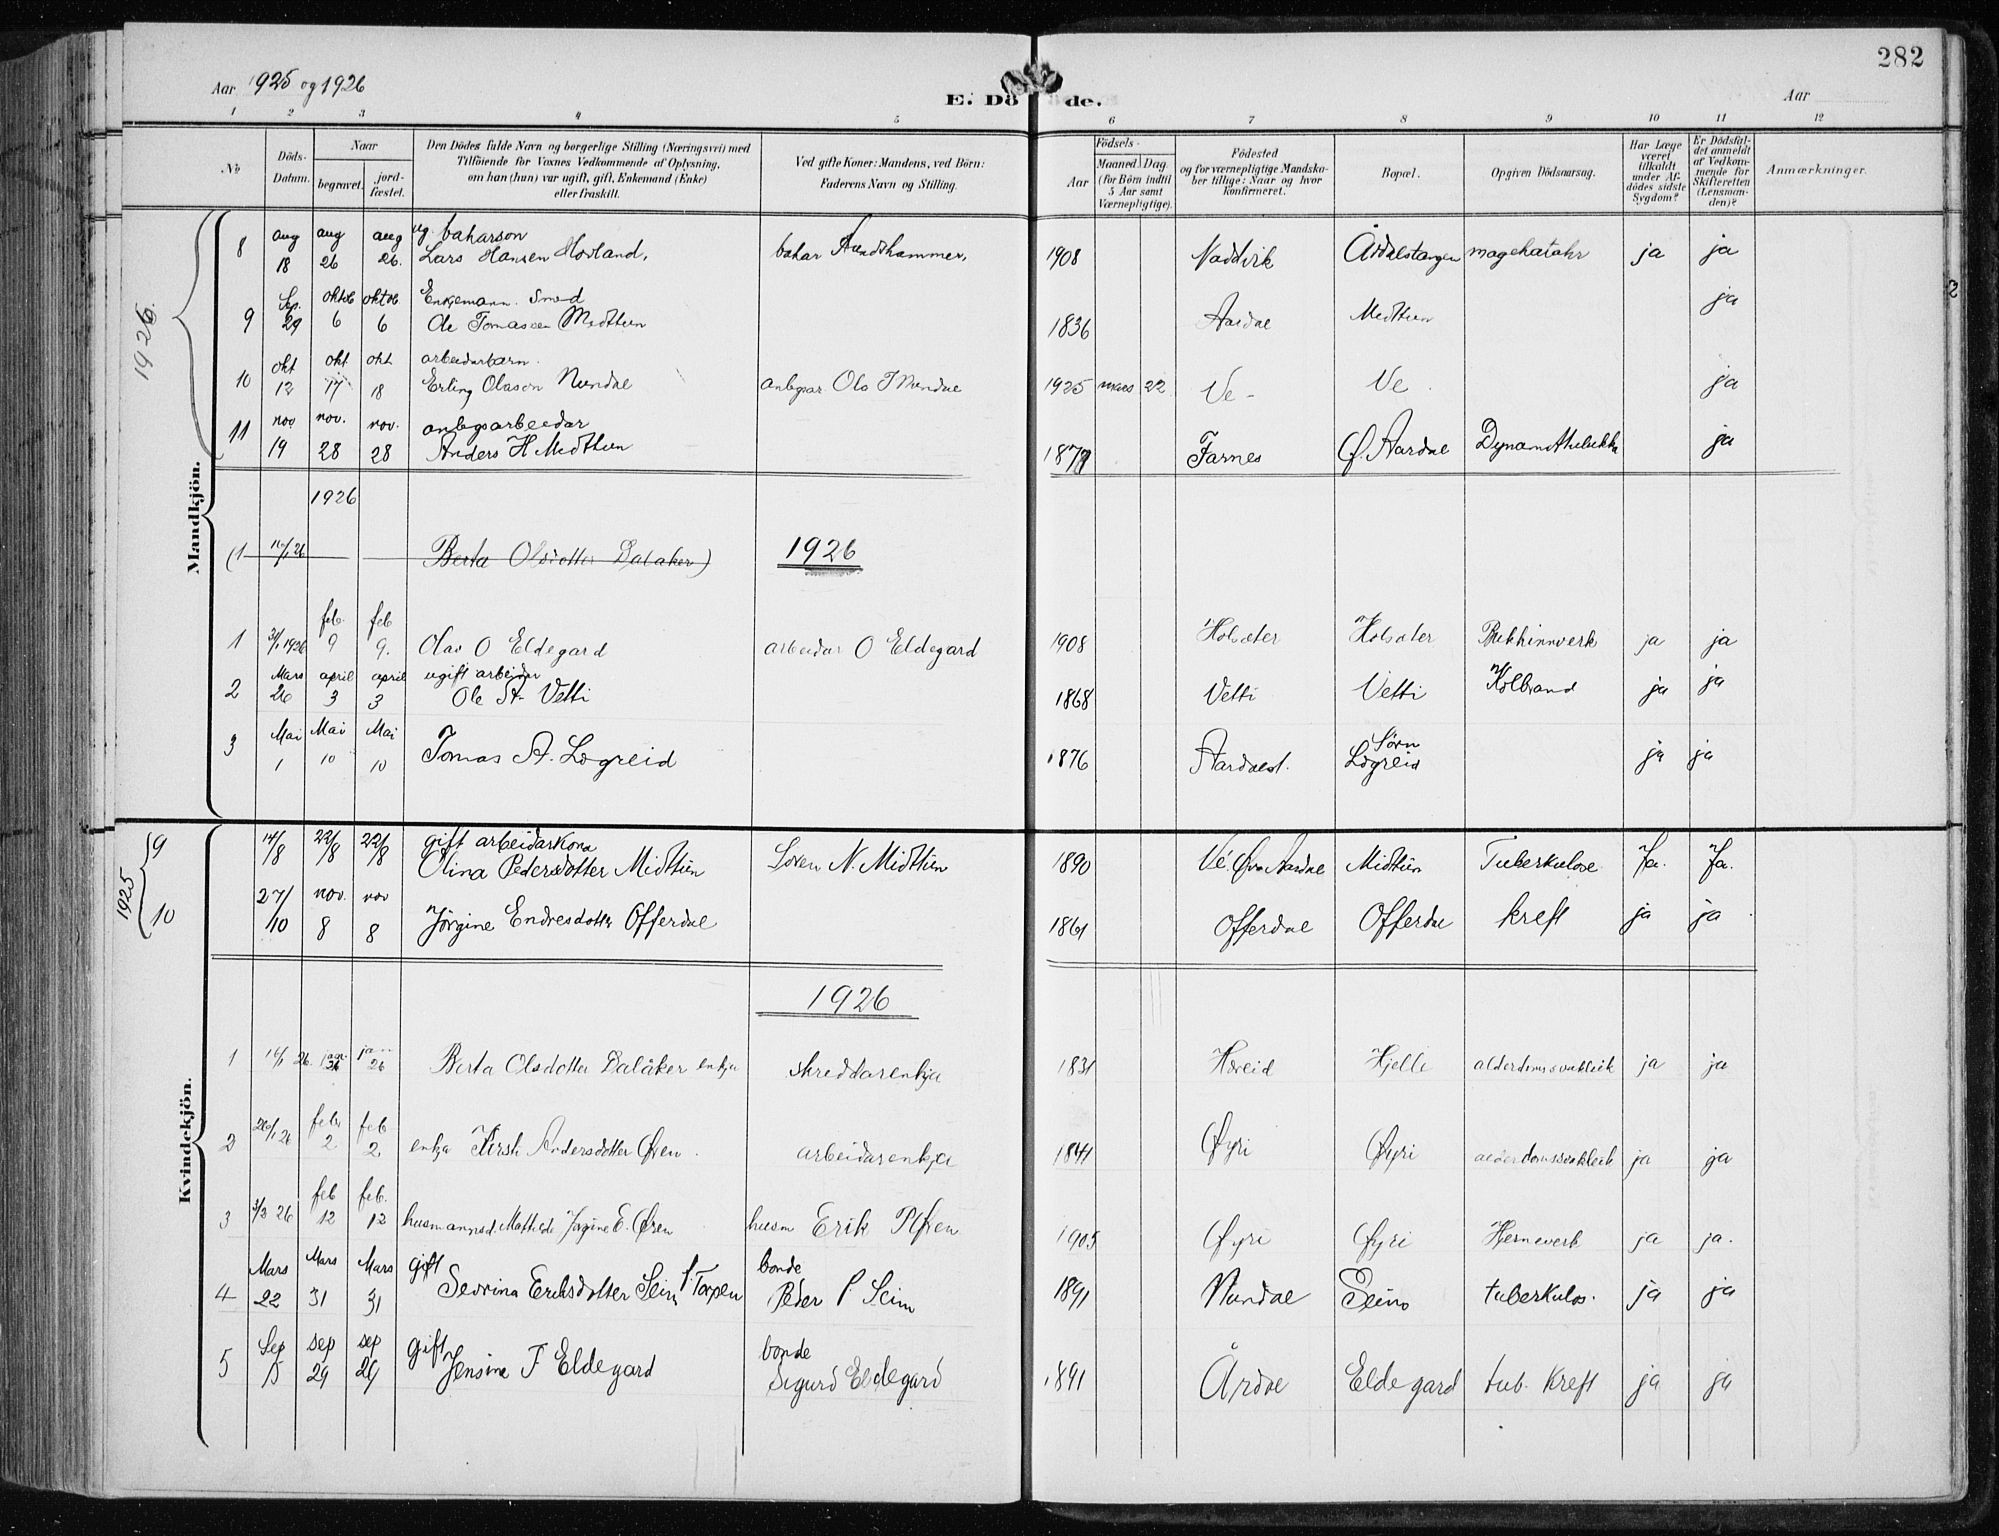 282
Aar 1925 og 1926
E. Dö de.
Aar
1 2 3 4 5 6 7 8 9 10 11 12
No
Döds-Datum.
Naar
begravet.
jord-fæstet.
Den Dödes fulde Navn og borgerlige Stilling (Næringsvei) med
Tilföiende for Voxnes Vedkommende af Oplysning,
om han (hun) var ugift, gift, Enkemand (Enke)
eller fraskilt.
Ved gifte Koner: Mandens, ved Börn:
Faderens Navn og Stilling.
Födsels-
Aar
Maaned Dag
(for Börn indtil
5 Aar samt
Værnepligtige).
Födested
og for værnepligtige Mandska-
ber tillige: Naar og hvor
konfirmeret.
Bopæl.
Opgiven Dödsaarsag.
Har Læge
været
tilkaldt
under Af-
dödes sidste
Sygdom?
Er Dödsfal-
det anmeldt
af Vedkom-
mende for
Skifteretten
(Lensman-
den)?
Anmærkninger.
Mandkjön.
1926
8 aug 18 aug 26 aug 26. ug. bakarson
Lars Hansen Hovland, bakar 1908 Naddvik Årdalstangen magekatahr ja ja
9 Sep. 29 oktob 6 oktob 6 Enkjemann. Smed
Ole Tomassen Midttun 1836 Aardal Midttun ja
10 okt 12 okt 17 okt 18 arbeidarbarn.
Erling Olason Nundal Ola Nundal 1925 mars 22 Ve Ve ja
11 nov 19 nov. 28 nov. 28 anlegsarbeidar
Anders H Midttun Farnes Ø. Aardal Dynamitulukka ja
1926
(1 26 Berta Olsdotter Dalaker) 1926
1 31/1 1926 feb. 9 feb 9. Olav O Eldegard arbeidar O Eldegard 1908 Holsæter Holsæter Brekkinnverk ja ja
2 Mars 26 april 3 april 3 ugift arbeidar
Ole A Vetti 1868 Vetti Vetti Kolbrand ja ja
3 Mai 1 Mai 10 Mai 10 Tomas A. Lægreid 1876 Aardalst. Lægreid ja ja
Kvindekjön.
1925
9 14/8 22/8 22/8 gift arbeidarkona
Olina Pedersdotter Midttun Soren N. Midttun 1890 Ve. Øvre Aardal Midttun Tuberkulose Ja. Ja.
10 27/10 nov. 8 nov 8 Jørgine Endresdotter Offerdal 1861 Offerdal Offerdal kreft ja ja
1926
1 26. 26 Berta Olsdotter Dalåker enkja skreddarenkja 1831 Hæreid Hjelle alderdomssvakleik ja ja
2 26/1 26 feb 2 feb 2 enkja Kirsti Andersdotter Øren arbeidarenkja 1841 Øyri Øyri alderdomssvakleik ja ja
3 3/2 26 feb 12 feb. 12 husmannsd. Mathilde Jørgine E. Øren husm Erik P Øren 1905 Øyri Øyri Hjerneverk ja ja.
4 Mars 22 Mars 31 Mars 31 gift
Sevrina Eriksdotter Seim f. Torpen bonde
Peder P Seim 1891 Nundal Seim tuberkulos. ja ja
5 Sep 15 sep 29 sep 29 gift
Jensine T Eldegard bonde
Sigurd Eldegard 1891 Årdal Eldegard tub. kreft ja ja